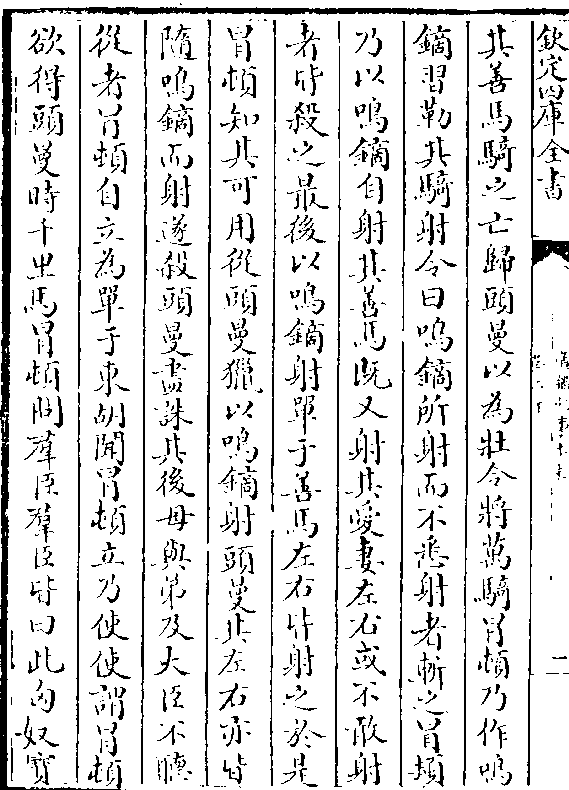 欽定四庫全書
其善馬騎之亡歸頭曼以為壯令將萬騎冒頓乃作鳴
鏑習勒其騎射令曰鳴鏑所射而不悉射者斬之冒頓
乃以鳴鏑自射其善馬既又射其愛妻左右或不敢射
者皆殺之最後以鳴鏑射單于善馬左右皆射之於是
冒頓知其可用從頭曼獵以鳴鏑射頭曼其左右亦皆
隨鳴鏑而射遂殺頭曼盡誅其後母與弟及大臣不聽
從者冒頓自立為單于東胡聞冒頓立乃使使謂冒頓
欲得頭曼時千里馬冒頓問羣臣羣臣皆曰此匈奴寶